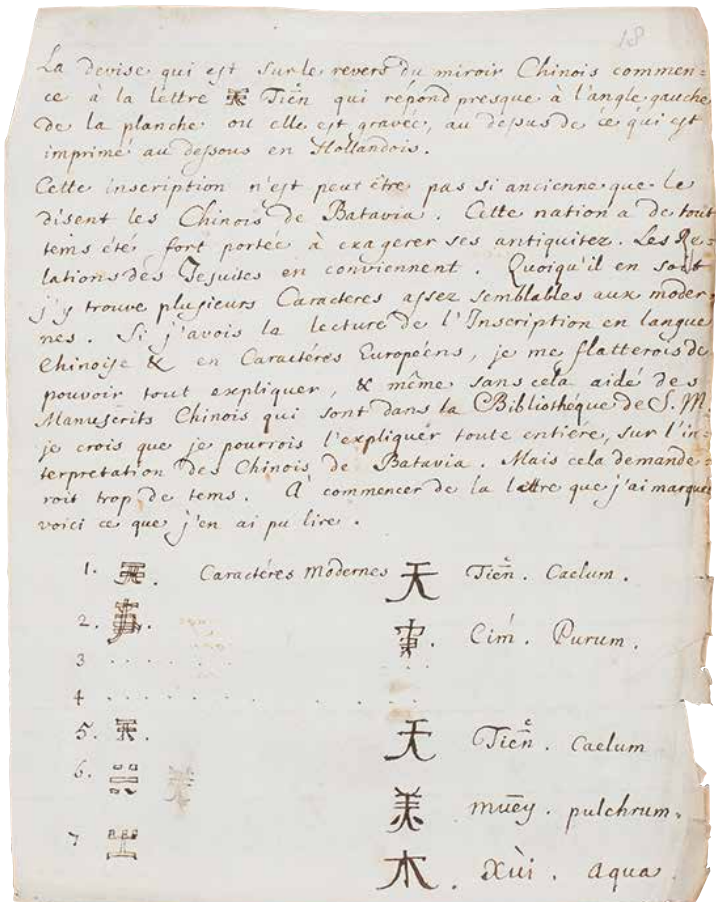 18
La devise qui est sur le revers du miroir Chinois commen=
ce à la léttre Tien qui répond presque à l'angle gauche
de la planche ou elle est gravée, au dessus de ce qui est
imprimé au dessous en Hollandois.
Cette inscription n'est peut être pas si ancienne que le
disent les Chinois de Batavia. Cette nation a de tout
tems été fort portée à exagerer ses antiquitez. Les Re=
lations des Jesuites en conviennent. Quoiqu'il en soit
j'y trouve plusieurs Caracteres assez semblables aux moder=
nes. Si j'avois la lecture de l'Inscription en langue
Chinoise & en Caractéres Européens, je me flatterois de
pouvoir tout expliquer, & même sans cela aidé des
Manuscrits Chinois qui sont dans la Bibliothéque de S. M.
je crois que je pourrois l'expliquer toute entiére, sur l'in=
terpretation des Chinois de Batavia. Mais cela demande=
roit trop de tems. A commencer de la lettre que j'ai marquée
voici ce que j'en ai pu lire.
1. Caractéres Modernes 天 Tien. Caelum.
2. Cim. Purum.
3 . . . . . .
4 . . . . . . . . . . . .
5. 天 Tien. Caelum
6. 美 muēy. pulchrum.
7 木. Xùi. aqua